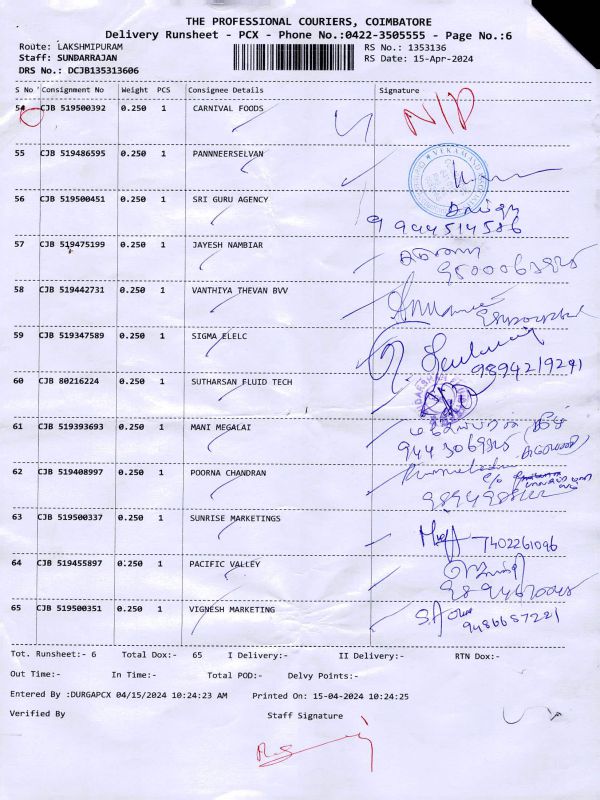 THE PROFESSIONAL COURIERS, COIMBATORE
Delivery Runsheet - PCX - Phone No.:0422-3505555 - Page No.:6
Route: LAKSHMIPURAM RS No.: 1353136
Staff: SUNDARRAJAN RS Date: 15-Apr-2024
DRS No.: DCJB135313606
S No Consignment No Weight PCS Consignee Details Signature
54 CJB 519500392 0.250 1 CARNIVAL FOODS N/D
55 CJB 519486595 0.250 1 PANNNEERSELVAN
56 CJB 519500451 0.250 1 SRI GURU AGENCY
9944514586
57 CJB 519475199 0.250 1 JAYESH NAMBIAR
58 CJB 519442731 0.250 1 VANTHIYA THEVAN BVV
59 CJB 519347589 0.250 1 SIGMA ELELC
9894219291
60 CJB 80216224 0.250 1 SUTHARSAN FLUID TECH
61 CJB 519393693 0.250 1 MANI MEGALAI
62 CJB 519408997 0.250 1 POORNA CHANDRAN
63 CJB 519500337 0.250 1 SUNRISE MARKETINGS
7402261096
64 CJB 519455897 0.250 1 PACIFIC VALLEY
65 CJB 519500351 0.250 1 VIGNESH MARKETING
9486657221
Tot. Runsheet:- 6 Total Dox:- 65 I Delivery:- II Delivery:- RTN Dox:-
Out Time:- In Time:- Total POD:- Delvy Points:-
Entered By :DURGAPCX 04/15/2024 10:24:23 AM Printed On: 15-04-2024 10:24:25
Verified By Staff Signature